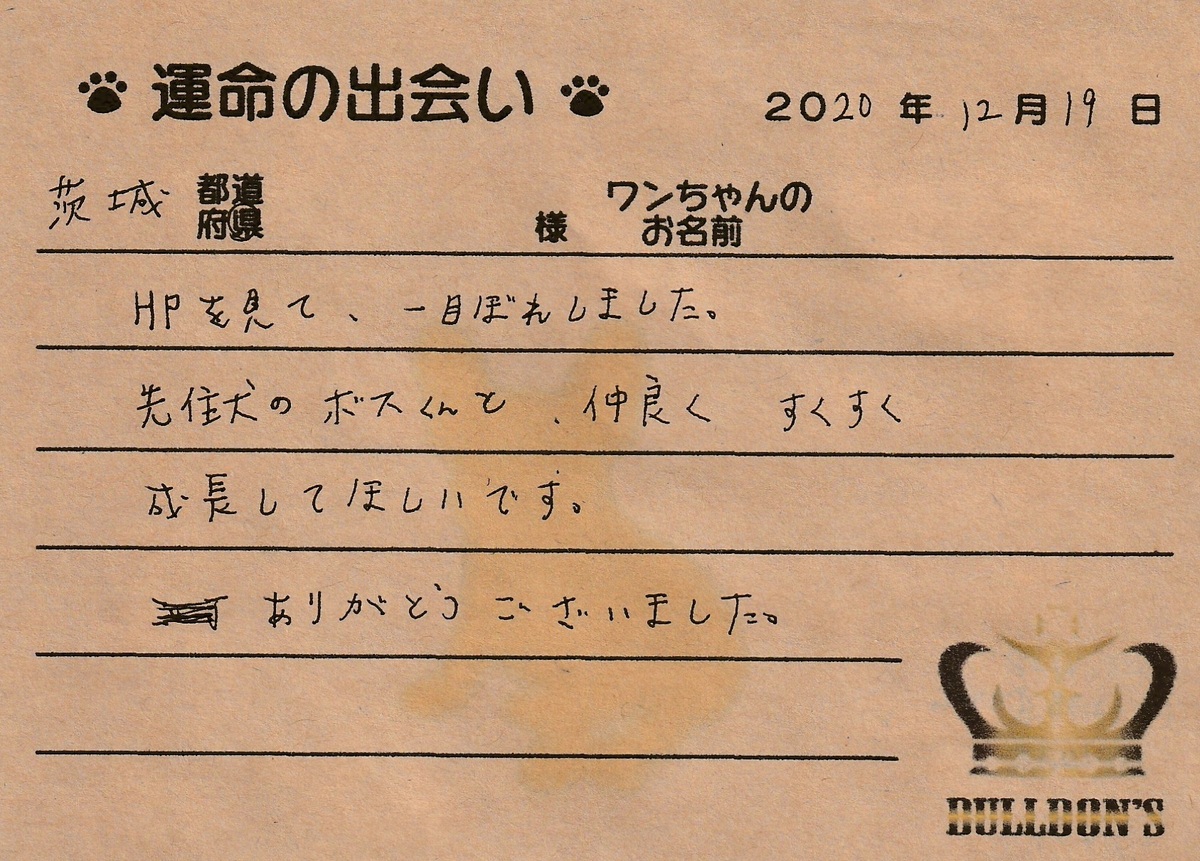 運命の出会い
2020年12月19日
茨城 都道府県 様 ワンちゃんのお名前
HPを見て、一目ぼれしました。
先住犬のボスくんと、仲良く すくすく
成長してほしいです。
ありがとうございました。
BULLDON'S